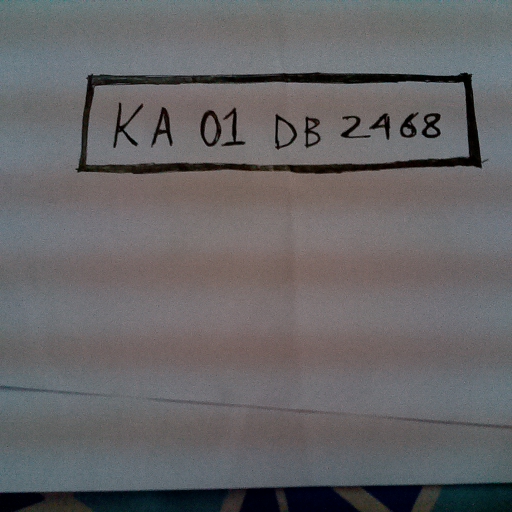 KA 01 DB 2468